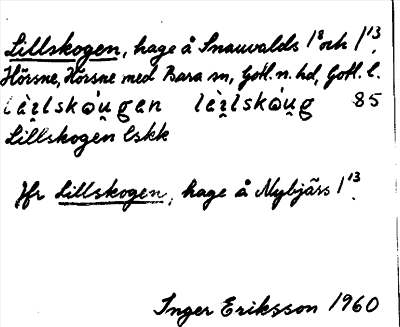 Lillskogen, hage å Snauvalds 1⁸ och 1¹³.
Hörsne, Hörsne med Bara sn, Gotl. n. hd, Gotl. l.
85
Lillskogen Eskk
Jfr Lillskogen, hage å Nybjärs 1¹³.
Inger Eriksson 1960